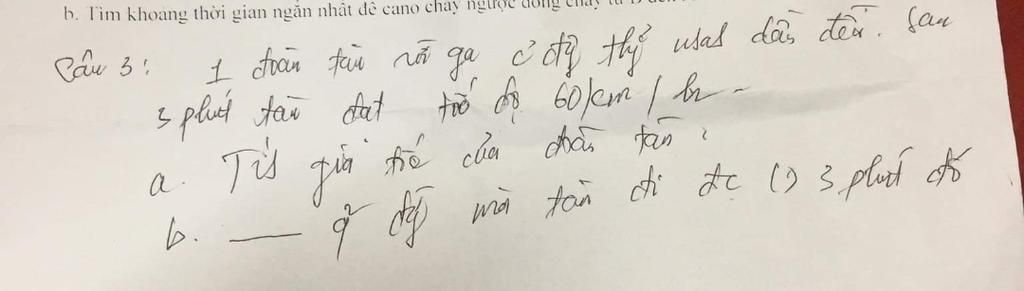 b. Tìm khoảng thời gian ngắn nhất để cano chạy ngược dòng chảy từ
Câu 3: 1 đoàn tàu rời ga cđ thẳng ndđ đều. Sau
3 phút tàu đạt tốc độ 60km/h
a. Tính gia tốc của đoàn tàu?
b. ___ qđ mà tàu đi đc () 3 phút đó